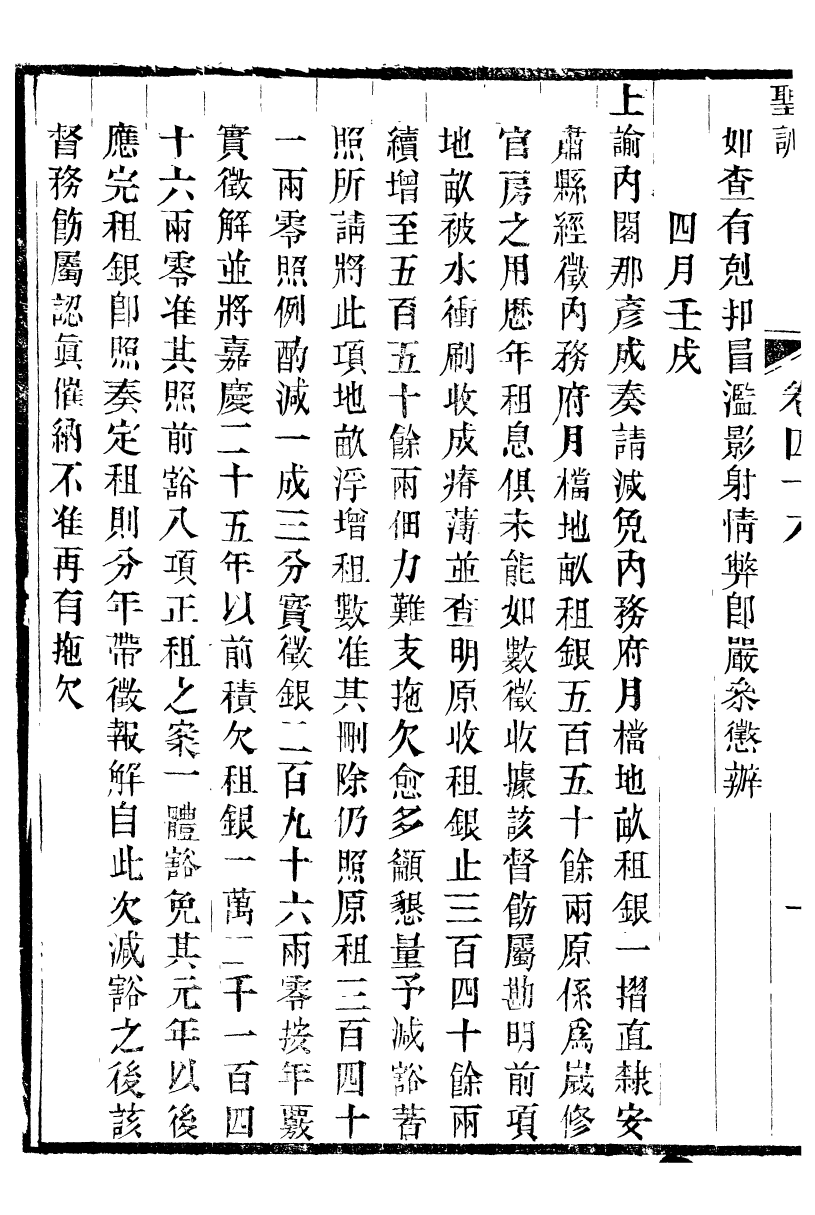 聖訓 卷四十六 一
如查有尅扣冒濫影射情弊卽嚴叅懲辦
四月壬戌
上諭內閣那彥成奏請減免內務府月檔地畝租銀一摺直隸安
肅縣經徵內務府月檔地畝租銀五百五十餘兩原係爲嵗修
官房之用歷年租息俱未能如數徵收據該督飭屬勘明前項
地畝被水衝刷收成瘠薄並查明原收租銀止三百四十餘兩
續增至五百五十餘兩佃力難支拖欠愈多籲懇量予減豁著
照所請將此項地畝浮增租數准其刪除仍照原租三百四十
一兩零照例酌減一成三分實徵銀二百九十六兩零按年覈
實徵解並將嘉慶二十五年以前積欠租銀一萬二千一百四
十六兩零准其照前豁八項正租之案一體豁免其元年以後
應完租銀卽照奏定租則分年帶徵報解自此欠減豁之後該
督務飭屬認眞催納不准再有拖欠